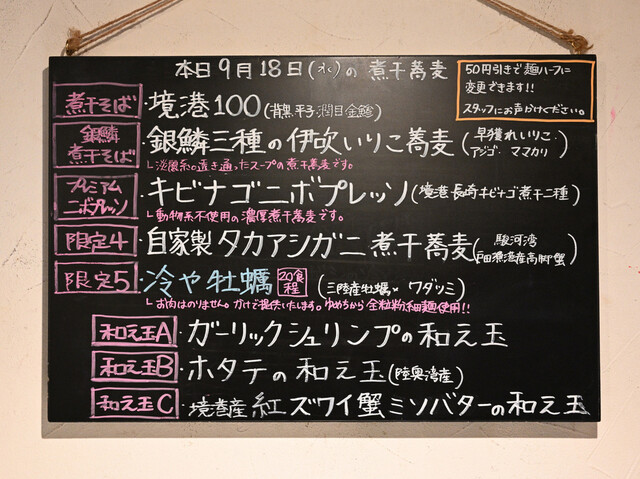 本日9月18日(水)の煮干蕎麦
50円引きで麺ハーフに
変更できます!!
スタッフにお声かけください。
煮干そば・境港100(背黒 平子 潤目 金鯵)
銀鱗
煮干そば・銀鱗三種の伊吹いりこ蕎麦(早獲れいりこ・
アジゴ・ママカリ)
└淡麗系。透き通ったスープの煮干蕎麦です。
プレミアム
ニボプレッソ・キビナゴニボプレッソ(境港 長崎キビナゴ煮干二種)
└動物系不使用の濃厚煮干蕎麦です。
限定4・自家製タカアシガニ煮干蕎麦(駿河湾
戸田漁港産高脚蟹)
限定5・冷や牡蠣 20食程 (三陸産牡蠣×ワダツミ)
└お肉はのりません。かけで提供いたします。ゆめちから全粒粉細麺使用!!
和え玉A・ガーリックシュリンプの和え玉
和え玉B・ホタテの和え玉(陸奥湾産)
和え玉C・境港産紅ズワイ蟹ミソバターの和え玉